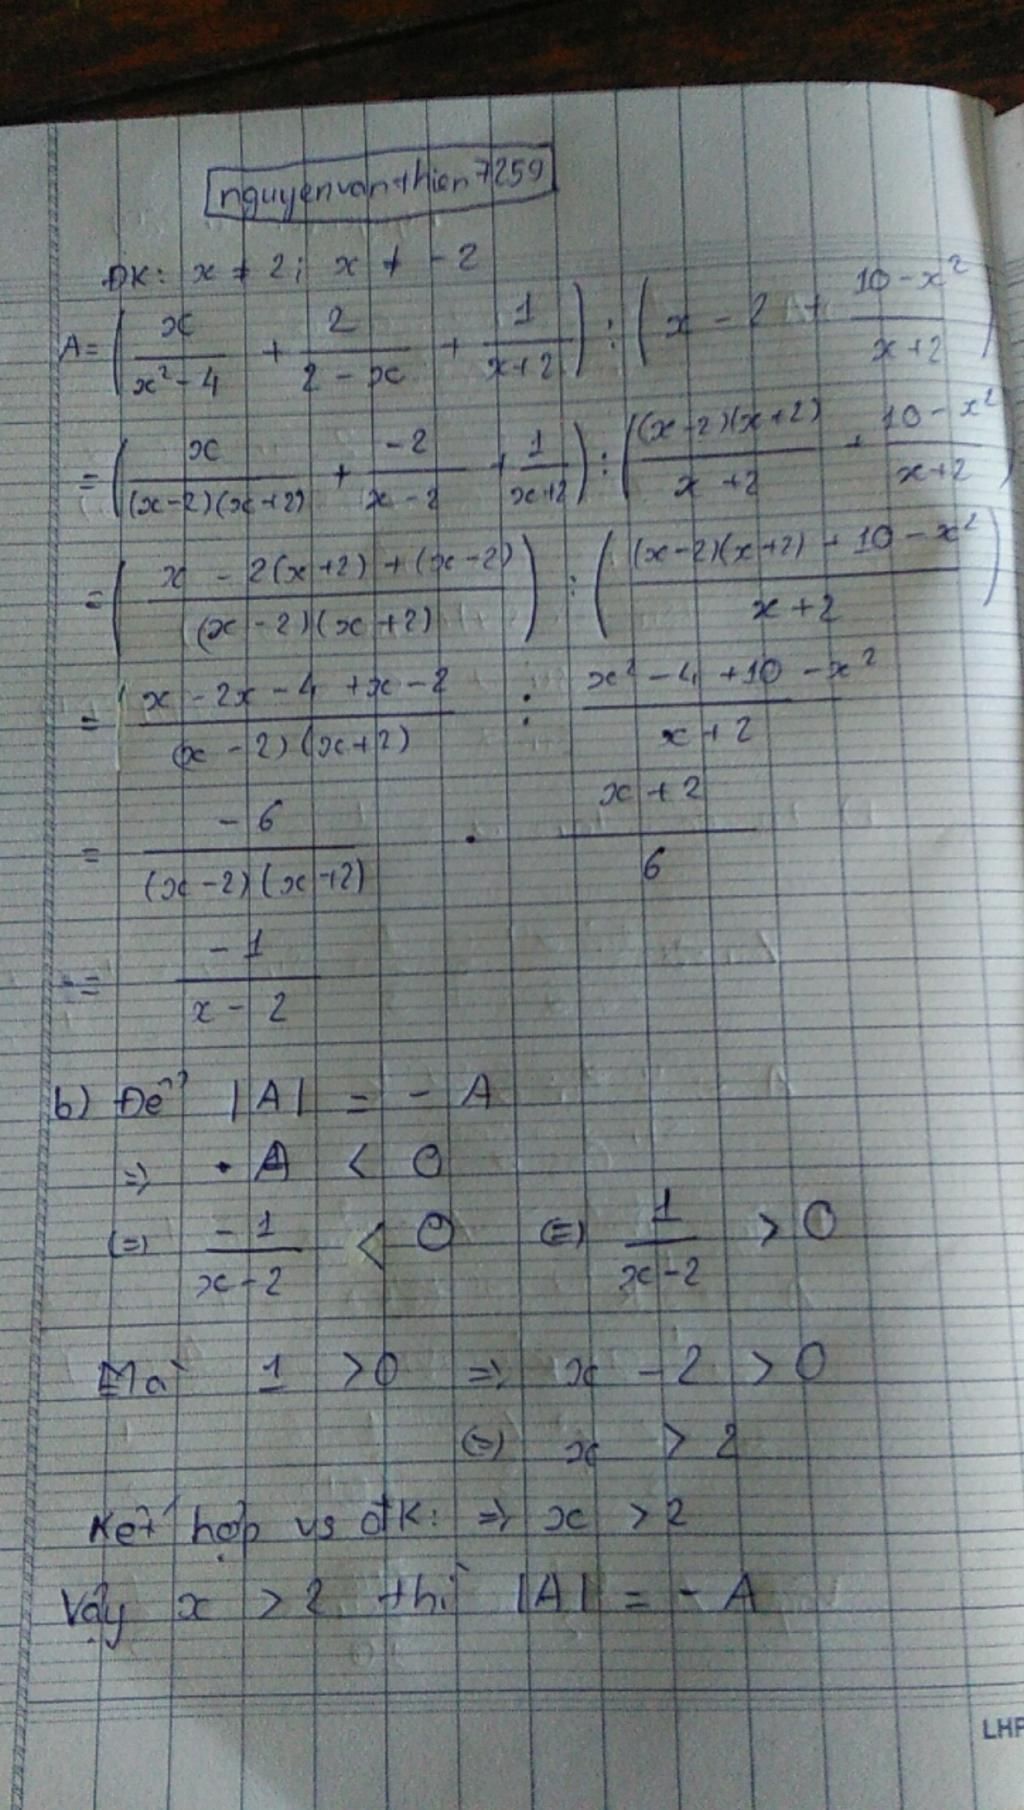 nguyenvanthien7259
ĐK: x ≠ 2; x ≠ -2
A = (x/(x² - 4) + 2/(2 - x) + 1/(x+2)) : (x - 2 + (10 - x²)/(x+2))
= (x/((x-2)(x+2)) + -2/(x-2) + 1/(x+2)) : ((x-2)(x+2)/(x+2) + (10 - x²)/(x+2))
= ((x - 2(x+2) + (x-2))/((x-2)(x+2))) : (((x-2)(x+2) + 10 - x²)/(x+2))
= (x - 2x - 4 + x - 2)/((x-2)(x+2)) : (x² - 4 + 10 - x²)/(x+2)
= -6/((x-2)(x+2)) . (x+2)/6
= -1/(x-2)
b) Để |A| = - A
=> A < 0
(=) -1/(x-2) < 0 (=) 1/(x-2) > 0
Mà 1 > 0 => x - 2 > 0
(=) x > 2
Kết hợp vs đk: => x > 2
Vậy x > 2 thì |A| = - A
LHP